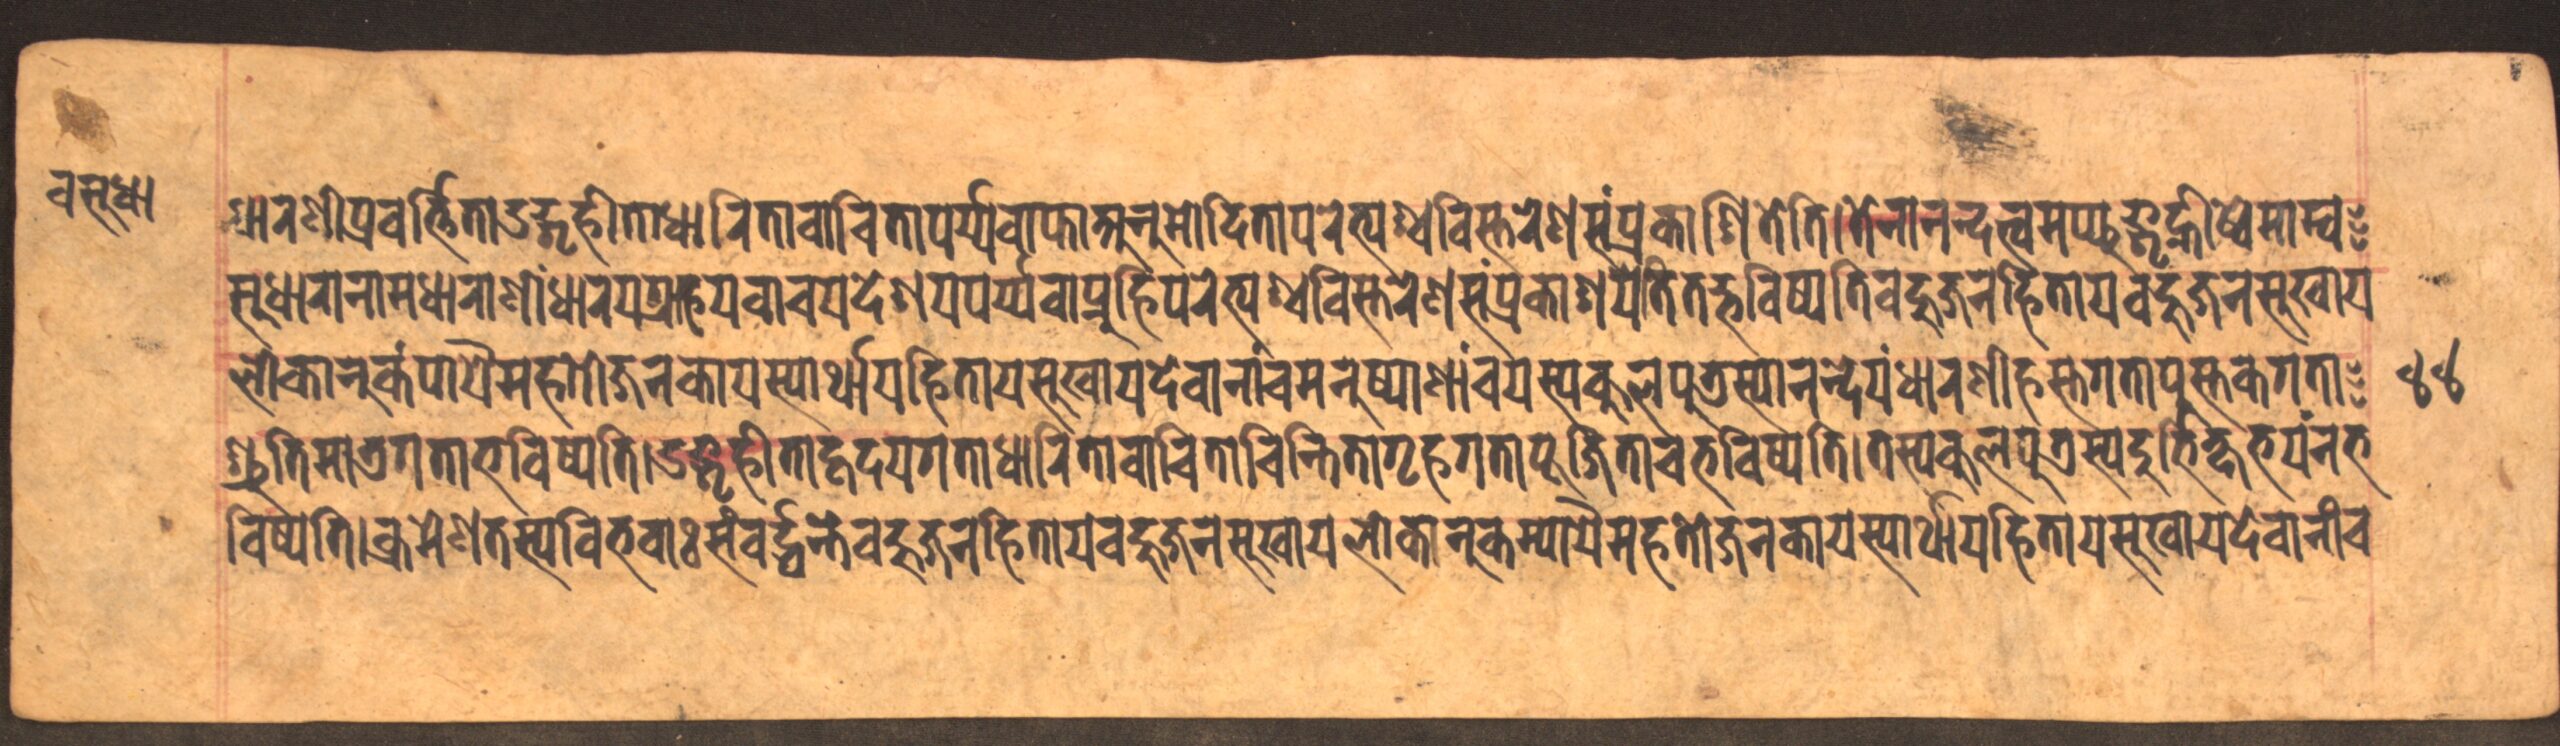 वसुधा
धारणीप्रवर्त्तिताउद्गृहीताधारितावाचितापर्य्यवाप्ताअनुमोदितापरेत्यश्चविस्तरेणसंप्रकाशितेति।तेनानन्दत्वमप्युद्गृह्णीष्वेमाम्व
सुधारानामधाराणींधारयग्राहयवाचयदेशयपर्य्यवाप्नुहिपरेत्यश्चविस्तरेणसंप्रकाशयेतितद्भविष्यतिवहुजनहितायवहुजनसुखाय
लोकानुकंपायैमहातोजनकायस्यार्थायहितायसुखायदेवानांचमनुष्याणांचयस्यकुलपुत्रस्यानन्देयंधारणीहस्तगतापुस्तकगता
४४
श्रुतिमात्रगताभविष्यति।उद्गृहीताहृदयगताधारितावाचिताचिन्तितागृहगतापूजिताचभविष्यति।तस्यकुलपुत्रस्यदुर्भिक्षभयंनभ
विष्यति।क्रमेणतस्यविभवाःसंवर्द्धन्तेवहुजनहितायवहुजनसुखायलोकानुकम्पायैमहतोजनकायस्यार्थायहितायसुखायदेवानांच